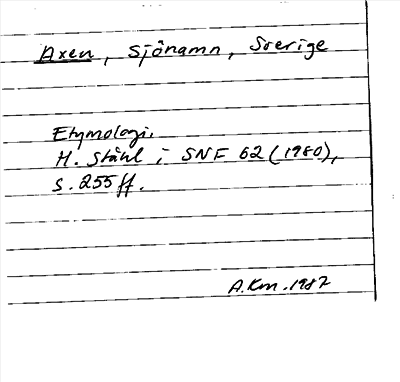 Axen, sjönamn, Sverige
Etymologi.
H. Ståhl i SNF 62 (1980),
s. 255 ff.
A.Km. 1987